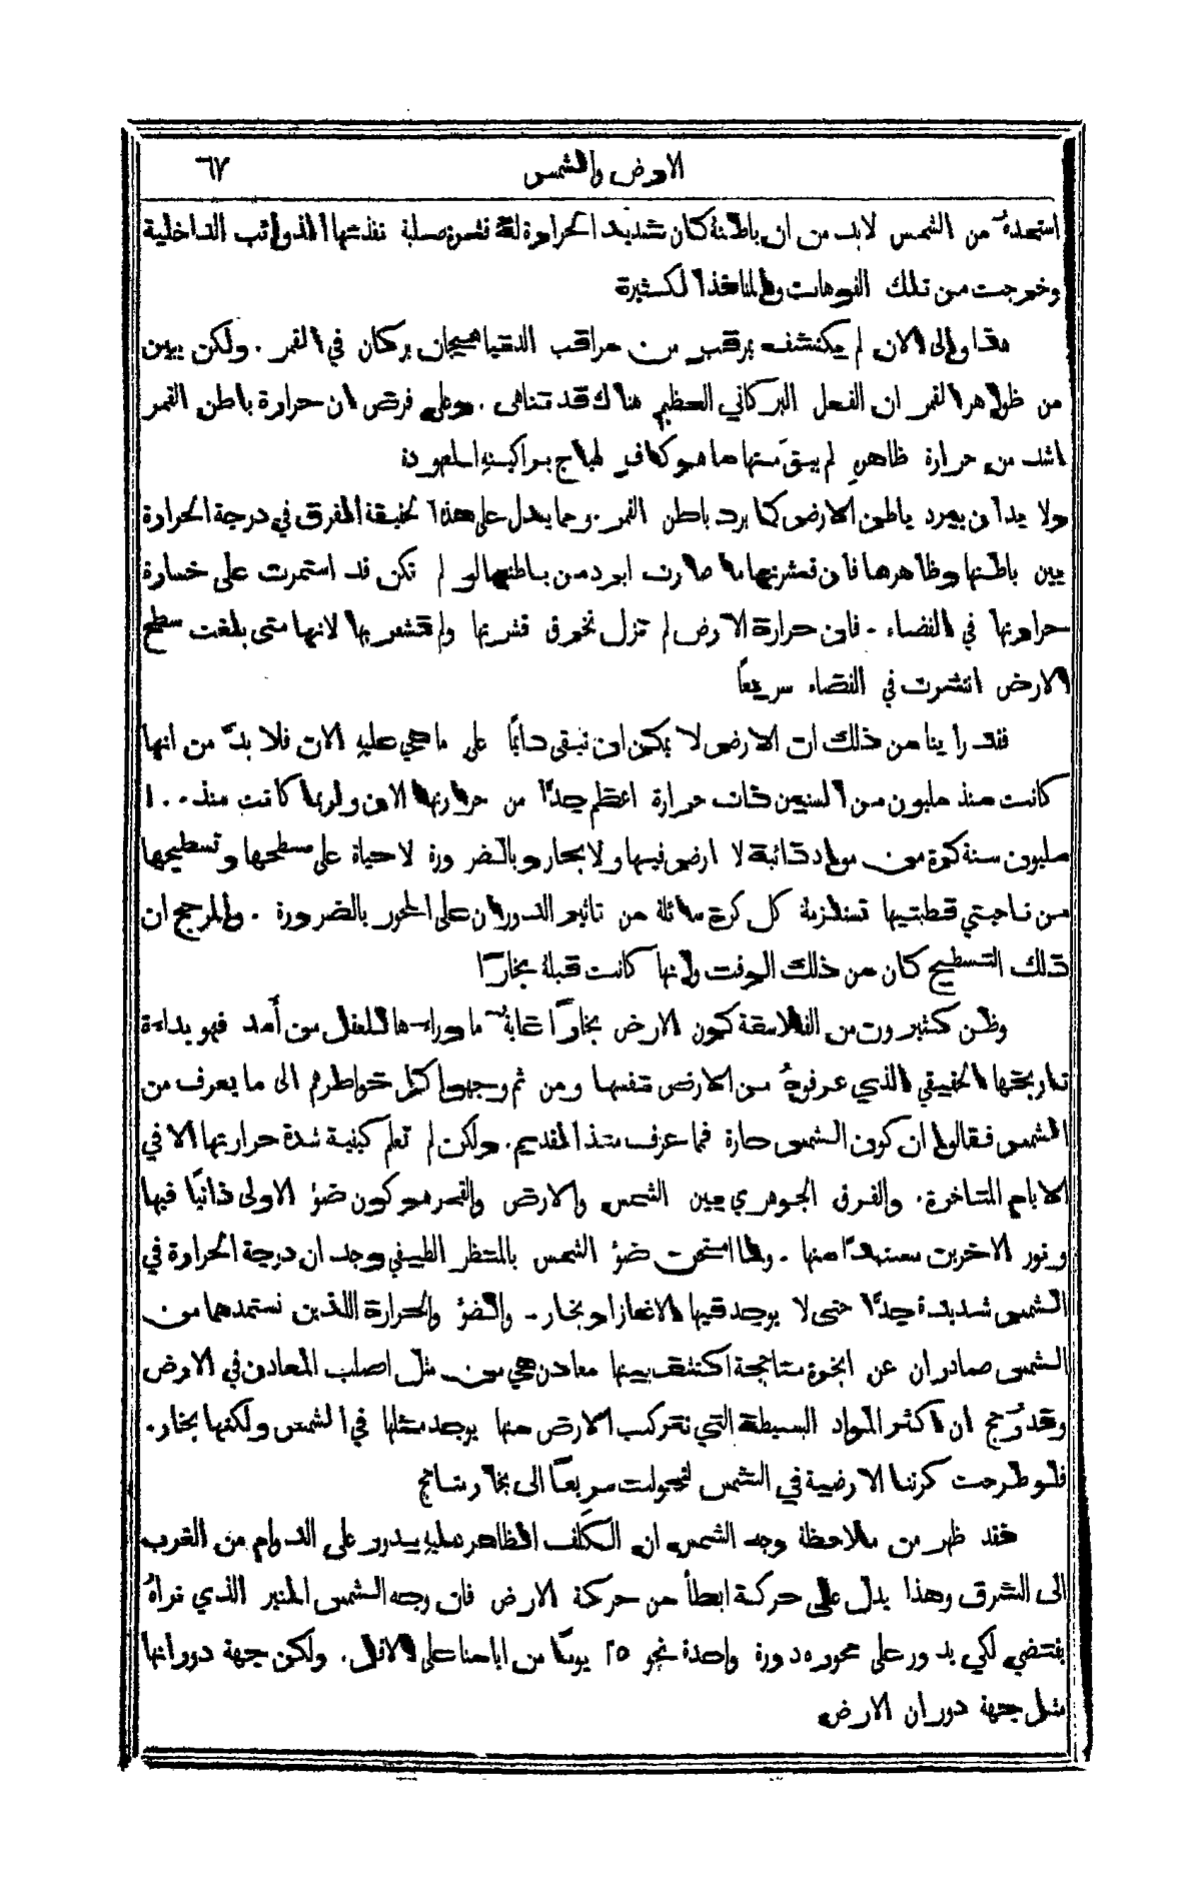 الارض والشمس ٦٧
استمدهُ من الشمس لابد من ان باطنة كان شديد الحرارة لهُ قشرة صلبة نفذتها الذوائب الداخلية
وخرجت من تلك الفوهات والمنافذ الكثيرة
هذا والى الان لم يكتشف برقب من مراقب الدنيا هيجان بركان في القمر . ولكن يبين
من ظواهر القمر ان الفعل البركاني العظيم هناك قد تناهى . وعلى فرض ان حرارة باطن القمر
اشد من حرارة ظاهرهِ لم يبقَ منها ما هو كافٍ لهياج براكينهِ المعهودة
ولا بد ان يبرد باطن الارض كما برد باطن القمر . ومما يدل على هذه الحقيقة الفرق في درجة الحرارة
بين باطنها وظاهرها فان قشرتها ما صارت ابرد من باطنها لو لم تكن قد استمرت على خسارة
حرارتها في الفضاء . فان حرارة الارض لم تزل تخرق قشرتها ولم تشعر بها لانها متى بلغت سطح
الارض انتشرت في الفضاء سريعًا
فقد راينا من ذلك ان الارض لا يمكن ان تبقى دائمًا على ما هي عليه الان فلا بدّ من انها
كانت منذ مليون من السنين ذات حرارة اعظم جدًّا من حرارتها الان ولربما كانت منذ ١٠٠
مليون سنة كرة من مواد ذائبة لا ارض فيها ولا بحار وبالضرورة لا حياة على سطحها وتسطيحها
من ناحيتي قطبتيها تستلزمهُ كل كرة مائلة من تاثير الدوران على المحور بالضرورة . والمرجح ان
ذلك التسطيح كان من ذلك الوقت وانها كانت قبلهُ بخارًا
وظن كثيرون من الفلاسفة كون الارض بخارًا غايةً ما وراءها للعقل من أمد فهو بداءة
تاريخها الحقيقي الذي عرفوهُ من الارض نفسها ومن ثم وجهوا كل خواطرهم الى ما يعرف من
الشمس فقالوا ان كون الشمس حارة فما عرف منذ القديم . ولكن لم تعلم كيفية شدة حرارتها الا في
الايام المتاخرة . والفرق الجوهري بين الشمس والارض والقمر هو كون ضوْ الاولى ذاتيًا فيها
ونور الاخرين مستمدًا منها . ولما امتحن ضوْ الشمس بالمنظر الطيفي وجد ان درجة الحرارة في
الشمس شديدة جدًّا حتى لا يوجد فيها الا غاز او بخار . والضوْ والحرارة اللذين نستمدهما من
الشمس صادران عن ابخرة متاججة اكتشف بينها معادن هي من مثل اصلب المعادن في الارض
وقد رُجح ان اكثر المواد البسيطة التي تتركب الارض منها يوجد مثلها في الشمس ولكنها بخار .
فلو طرحت كرتنا الارضية في الشمس لتحولت سريعًا الى بخار متاجج
فقد ظهر من ملاحظة وجه الشمس ان الكَلَف الظاهر عليه يدور على الدوام من الغرب
الى الشرق وهذا يدل على حركة ابطأ من حركة الارض فان وجه الشمس المنير الذي نراهُ
يقتضي لكي يدور على محوره دورة واحدة نحو ٢٥ يومًا من ايامنا على الاقل . ولكن جهة دورانها
مثل جهة دوران الارض